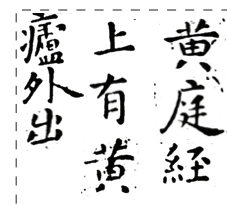 黄庭經
上有黄
廬外出